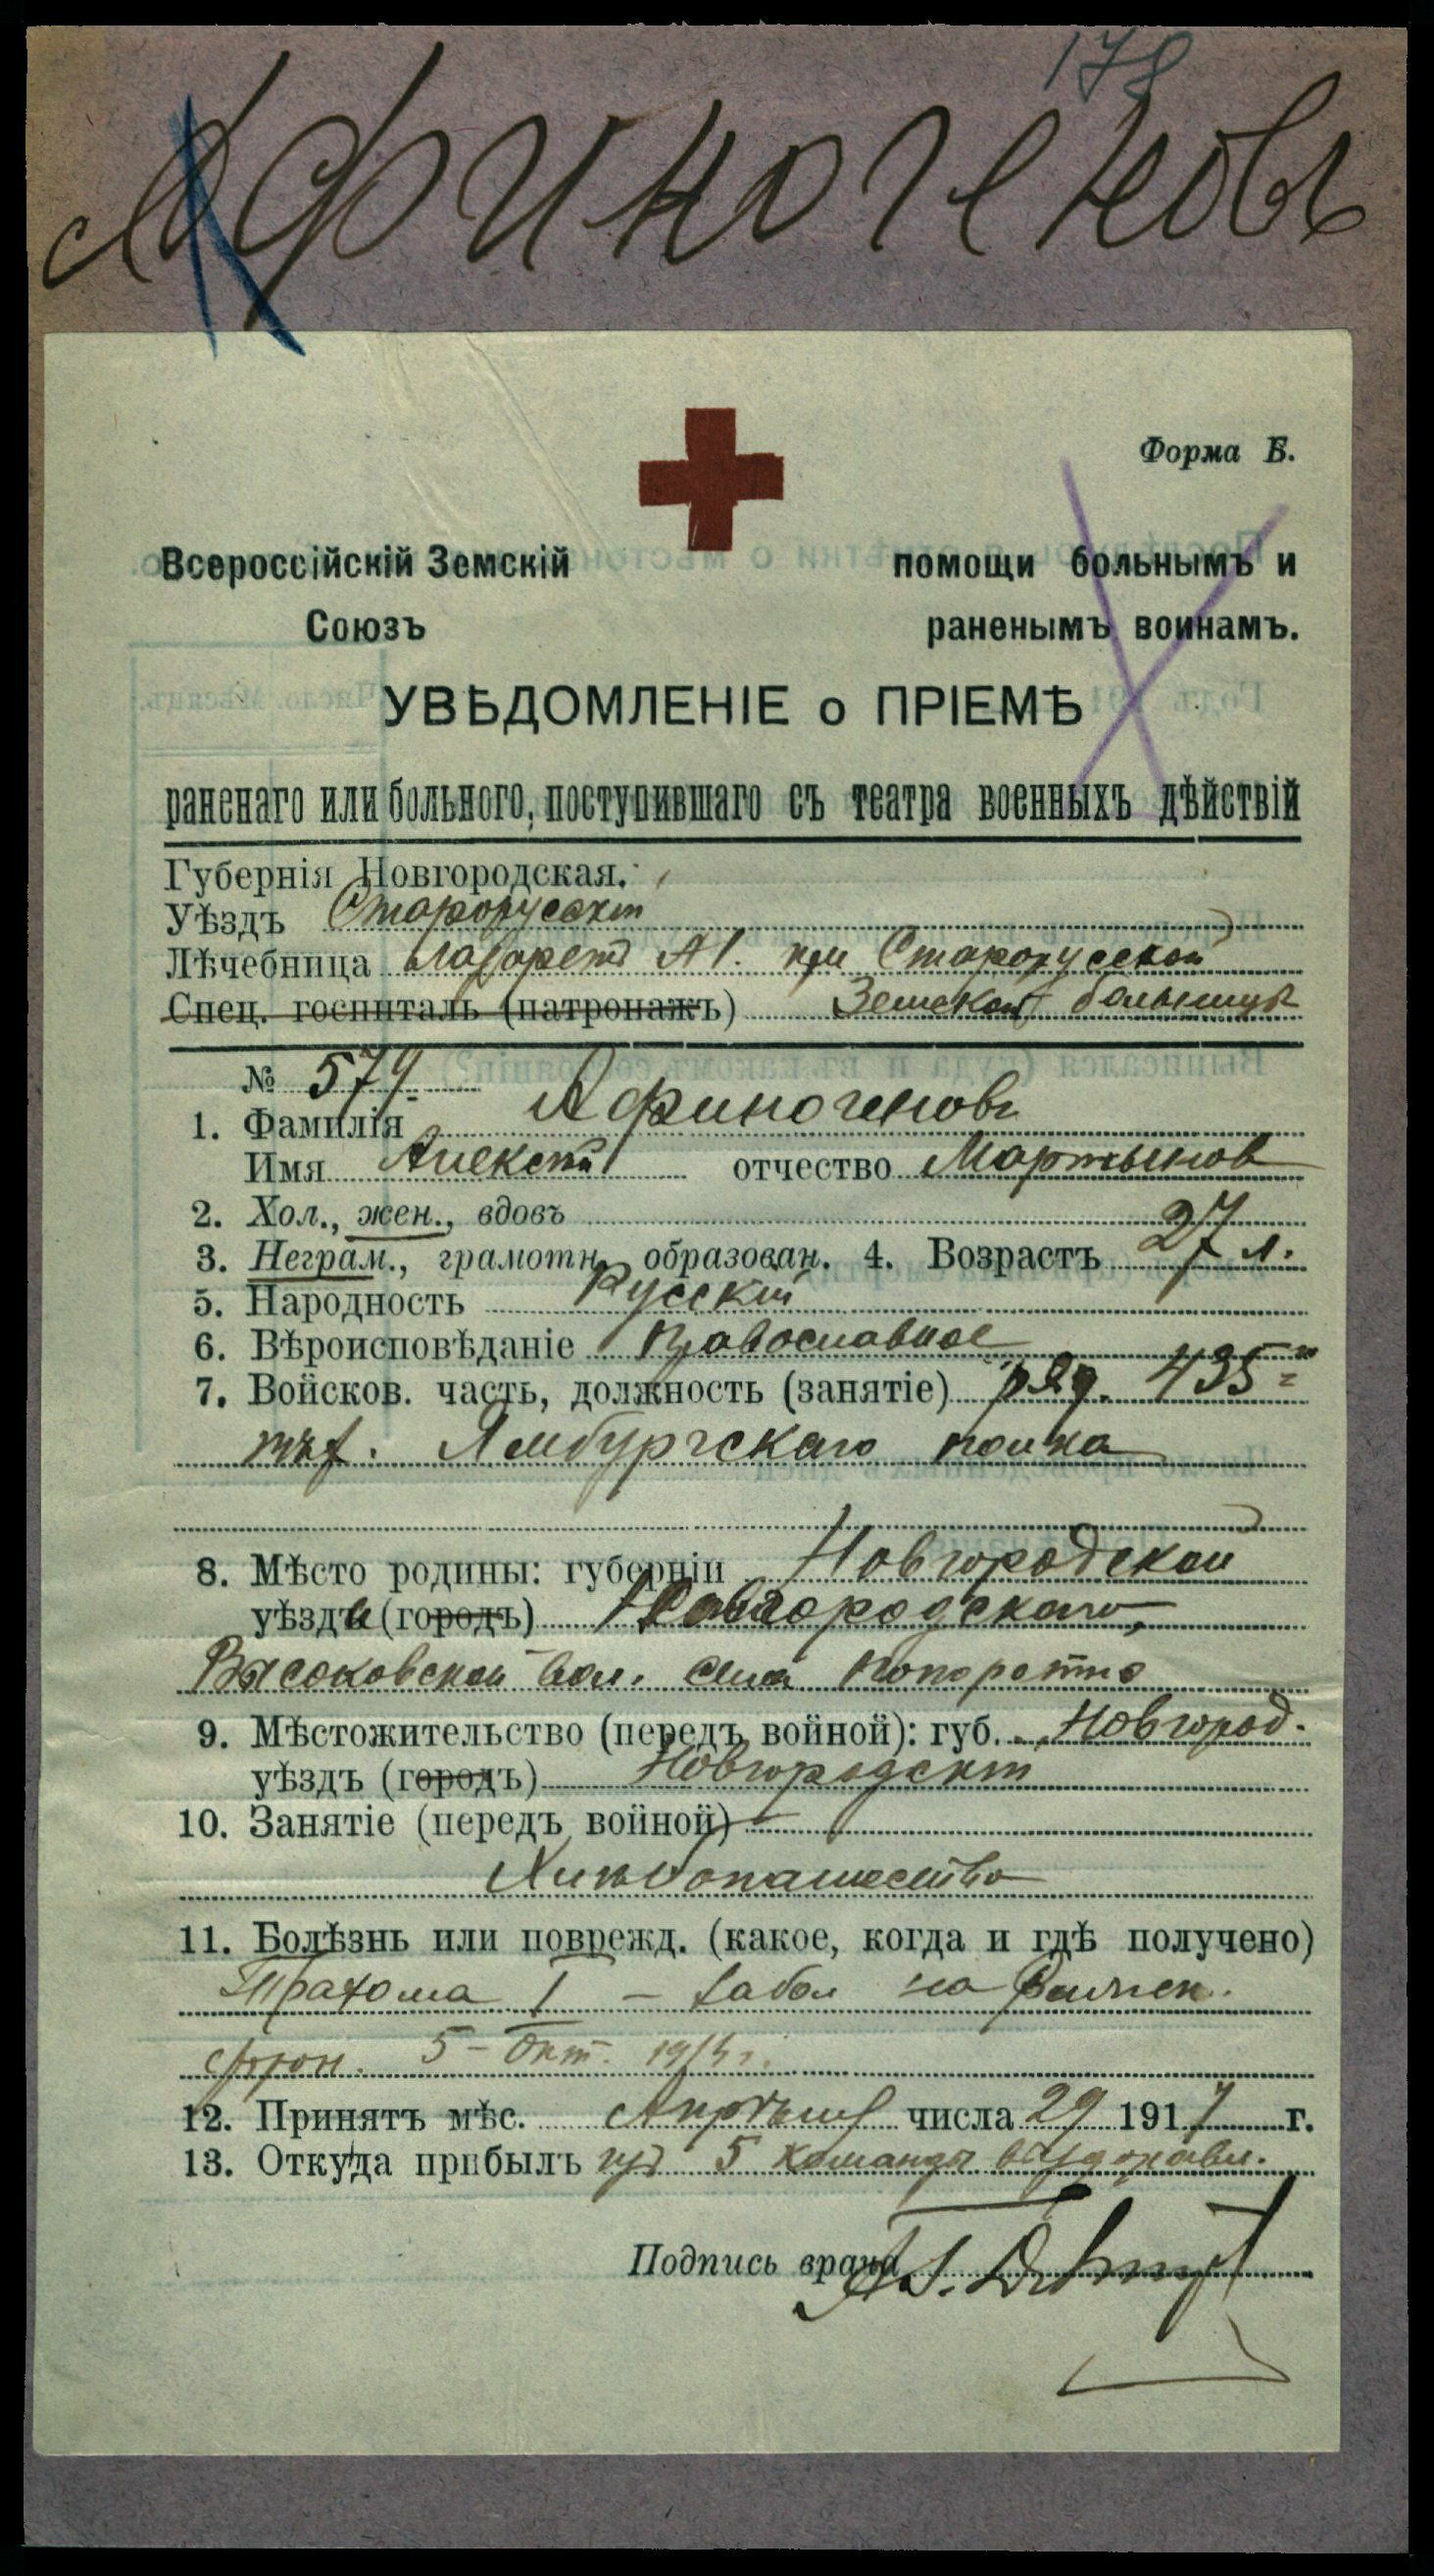 178
Афиногеновъ
Форма Б.
Всероссійскій Земскій
Союзъ
помощи больнымъ и
раненымъ воинамъ.
УВѢДОМЛЕНІЕ о ПРІЕМѢ
раненаго или больного, поступившаго съ театра военныхъ дѣйствій
Губернія Новгородская.
Уѣздъ Старорусскій
Лѣчебница Лазаретъ №1. при Старорусской
Спец. госпиталь (патронажъ) Земской больницѣ
№ 579.
1. Фамилія Афиногеновъ
Имя Алексѣй отчество Мартыновъ
2. Хол., жен., вдовъ
3. Неграм., грамотн., образован. 4. Возрастъ 27 л.
5. Народность Русскій
6. Вѣроисповѣданіе Православное
7. Войсков. часть, должность (занятіе) ряд. 435
пѣх. Ямбургскаго полка
8. Мѣсто родины: губерніи Новгородской
уѣзда (городъ) Новгородскаго,
Высоковской вол. села Копоротно
9. Мѣстожительство (передъ войной): губ. Новгород.
уѣздъ (городъ) Новгородскій
10. Занятіе (передъ войной)
Хлѣбопашество
11. Болѣзнь или поврежд. (какое, когда и гдѣ получено)
Трахома I – забол на
фрон. 5 – Окт.
12. Принятъ мѣс. Апрѣля числа 29 1917 г.
13. Откуда прибылъ изъ 5 команды выздоравл.
Подпись врача